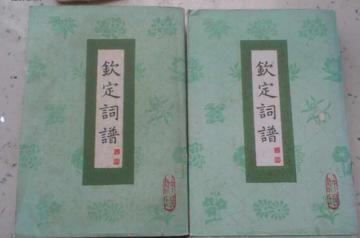 欽定詞譜
欽定詞譜